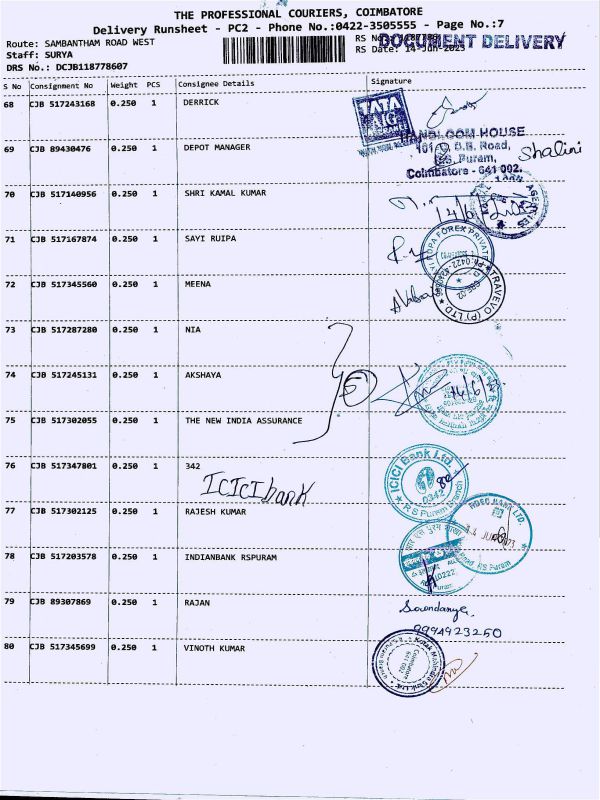 THE PROFESSIONAL COURIERS, COIMBATORE
Delivery Runsheet - PC2 - Phone No.:0422-3505555 - Page No.:7
Route: SAMBANTHAM ROAD WEST
RS No.:
DOCUMENT DELIVERY
Staff: SURYA
RS Date: 14-Jun-2023
DRS No.: DCJB118778607
S No Consignment No Weight PCS Consignee Details Signature
68 CJB 517243168 0.250 1 DERRICK
TATA
AIG
HANDLOOM HOUSE
69 CJB 89430476 0.250 1 DEPOT MANAGER
D.B. Road,
R.S. Puram,
Coimbatore - 641 002.
Shalini
70 CJB 517140956 0.250 1 SHRI KAMAL KUMAR
AGENCIES
71 CJB 517167874 0.250 1 SAYI RUIPA
FOREX PRIVATE
72 CJB 517345560 0.250 1 MEENA
TRAVEVO (P) LTD
73 CJB 517287280 0.250 1 NIA
74 CJB 517245131 0.250 1 AKSHAYA
5
14/6/
75 CJB 517302055 0.250 1 THE NEW INDIA ASSURANCE
76 CJB 517347801 0.250 1 342
ICICI bank
ICICI Bank Ltd.
0342
RS Puram Branch
77 CJB 517302125 0.250 1 RAJESH KUMAR
HDFC BANK LTD.
RS Puram
78 CJB 517203578 0.250 1 INDIANBANK RSPURAM
79 CJB 89307869 0.250 1 RAJAN
9994923250
80 CJB 517345699 0.250 1 VINOTH KUMAR
Kotak Mahindra Bank Ltd.
Coimbatore
641 002